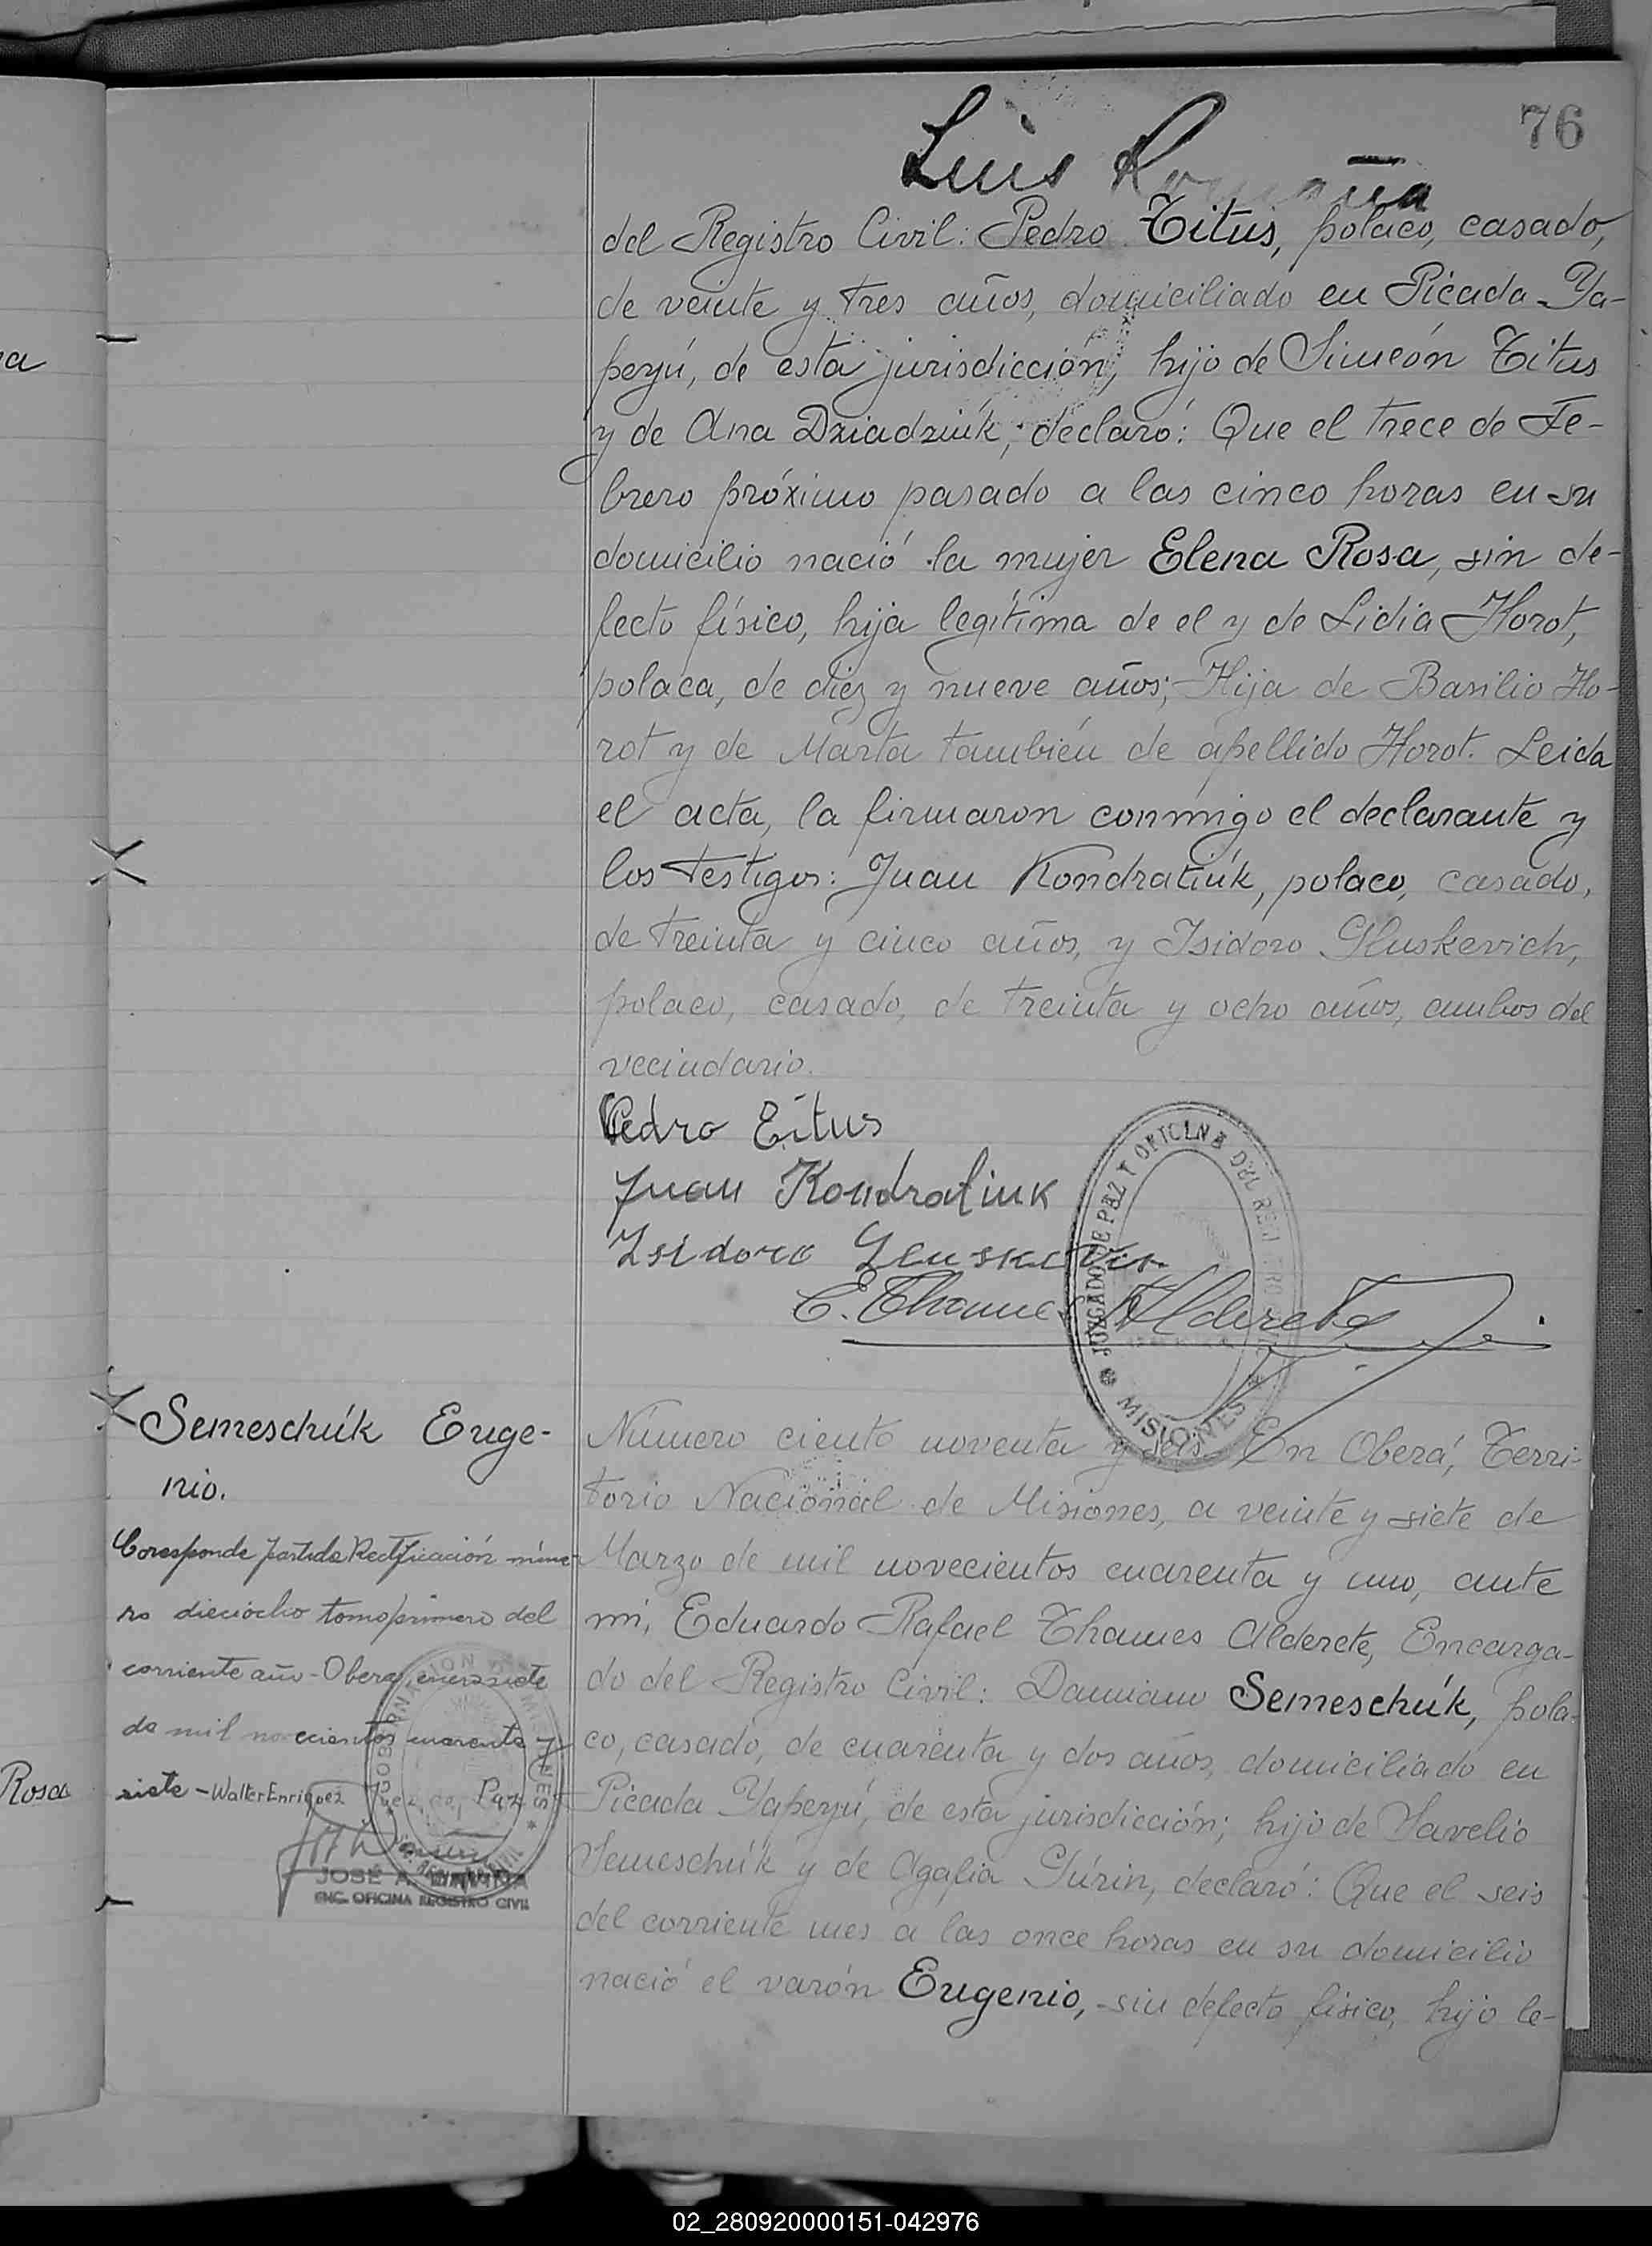 76
Luis Romaña
del Registro Civil: Pedro Titus, polaco, casado,
de veinte y tres años, domiciliado en Picada Ya-
peyú, de esta jurisdicción, hijo de Simeón Titus
y de Ana Dziadziúk, declaró: Que el trece de Fe-
brero próximo pasado a las cinco horas en su
domicilio nació la mujer Elena Rosa, sin de-
fecto físico, hija legítima de el y de Lidia Horot,
polaca, de diez y nueve años; Hija de Basilio Ho-
rot y de Marta también de apellido Horot. Leida
el acta, la firmaron conmigo el declarante y
los testigos: Juan Kondratiúk, polaco, casado,
de treinta y cinco años, y Isidoro Gluskevich,
polaco, casado, de treinta y ocho años, ambos del
vecindario.
Pedro Titus
Juan Kondratiuk
Isidoro
E. Thames Alderete
JUZGADO DE PAZ Y OFICINA DEL REGISTRO CIVIL
MISIONES
Semeschúk Euge-
nio.
Corresponde partida Rectificación núme-
ro dieciocho tomo primero del
corriente año - Obera, enero siete
de mil novecientos cuarenta y
siete - Walter Enriquez Juez de Paz
GOBERNACION DE MISIONES
JOSÉ A.
ENC. OFICINA REGISTRO CIVIL
Número ciento noventa y seis. En Oberá, Terri-
torio Nacional de Misiones, a veinte y siete de
Marzo de mil novecientos cuarenta y uno, ante
mi, Eduardo Rafael Thames Alderete, Encarga-
do del Registro Civil: Damiano Semeschúk, pola-
co, casado, de cuarenta y dos años, domiciliado en
Picada Yapeyú, de esta jurisdicción; hijo de Savelio
Semeschúk y de Agafia Gúrin, declaró: Que el seis
del corriente mes a las once horas en su domicilio
nació el varón Eugenio, sin defecto físico, hijo le-
Rosa
02_280920000151-042976